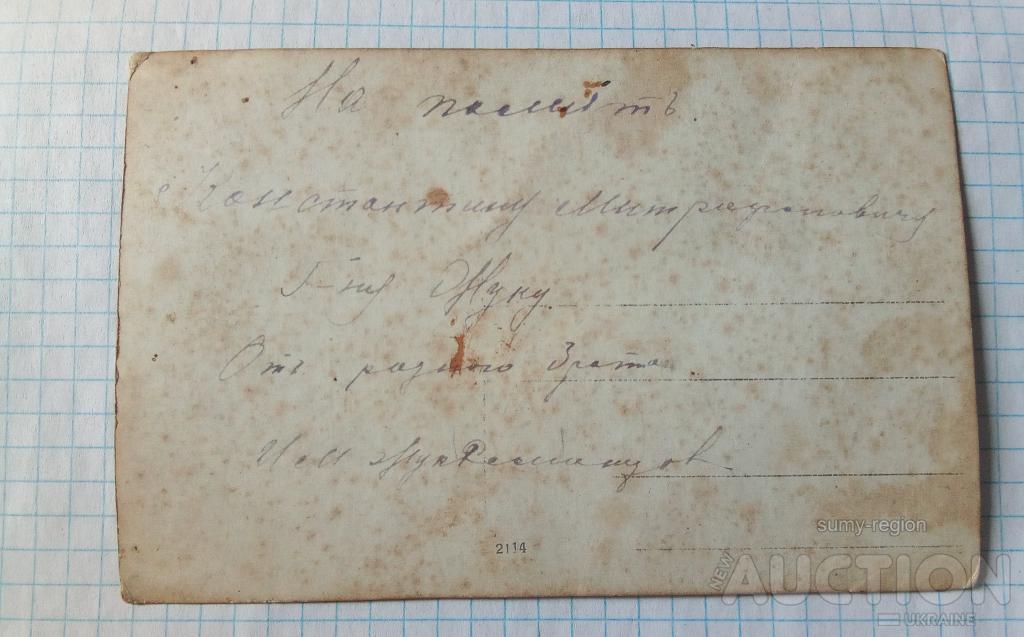 На память
Константину Митрофановичу
Г-ну Жуку
Отъ родного брата
Жук
2114
sumy-region
NEW AUCTION
UKRAINE